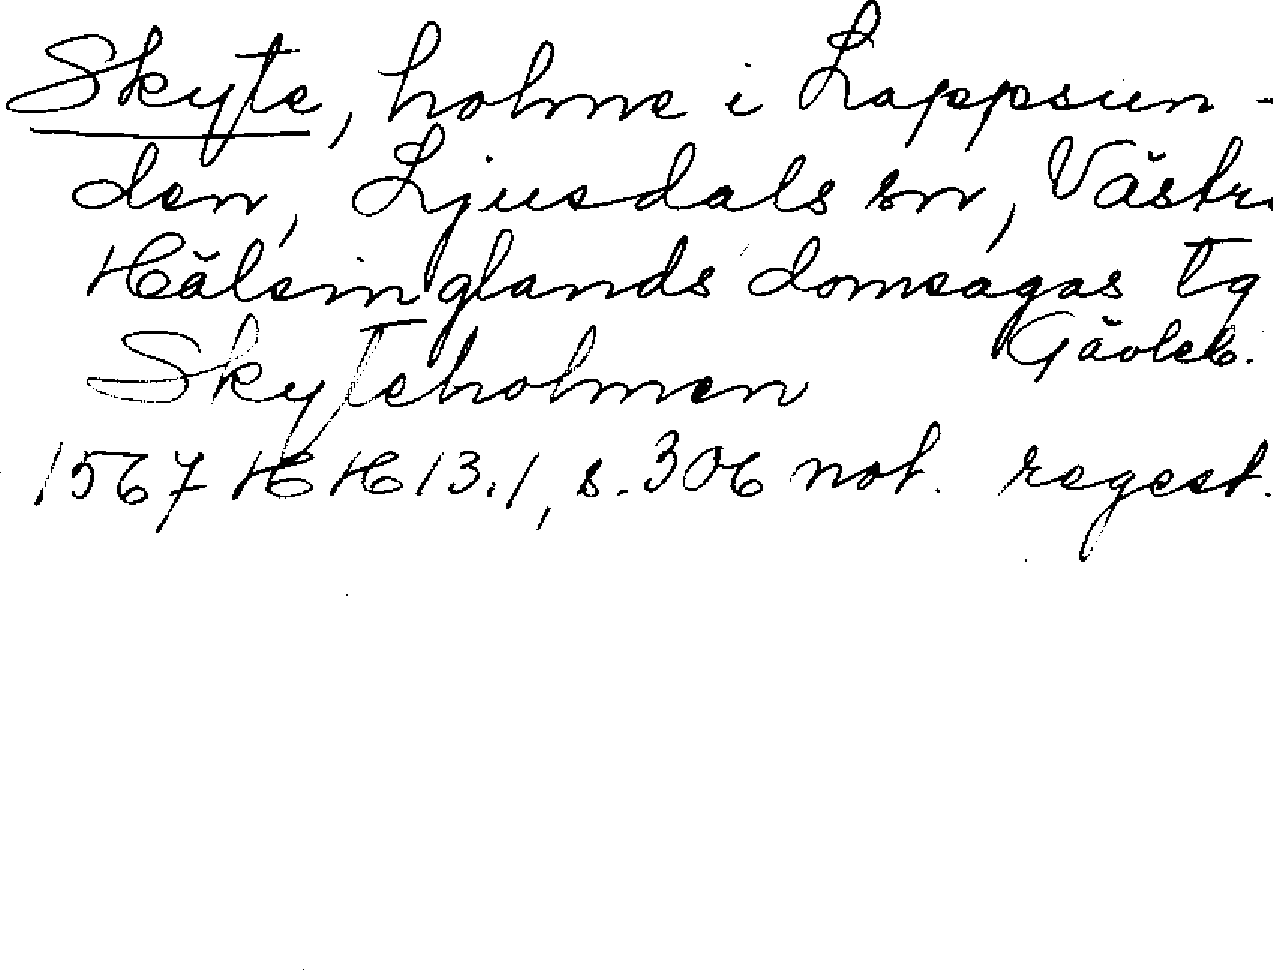 Skyte, holme i Lappsun-
den, Ljusdals sn, Västr
Hälsinglands domsagas tg
Gävleb.
Skyteholmen
1567 HH 13:1, s. 306 not. regest.